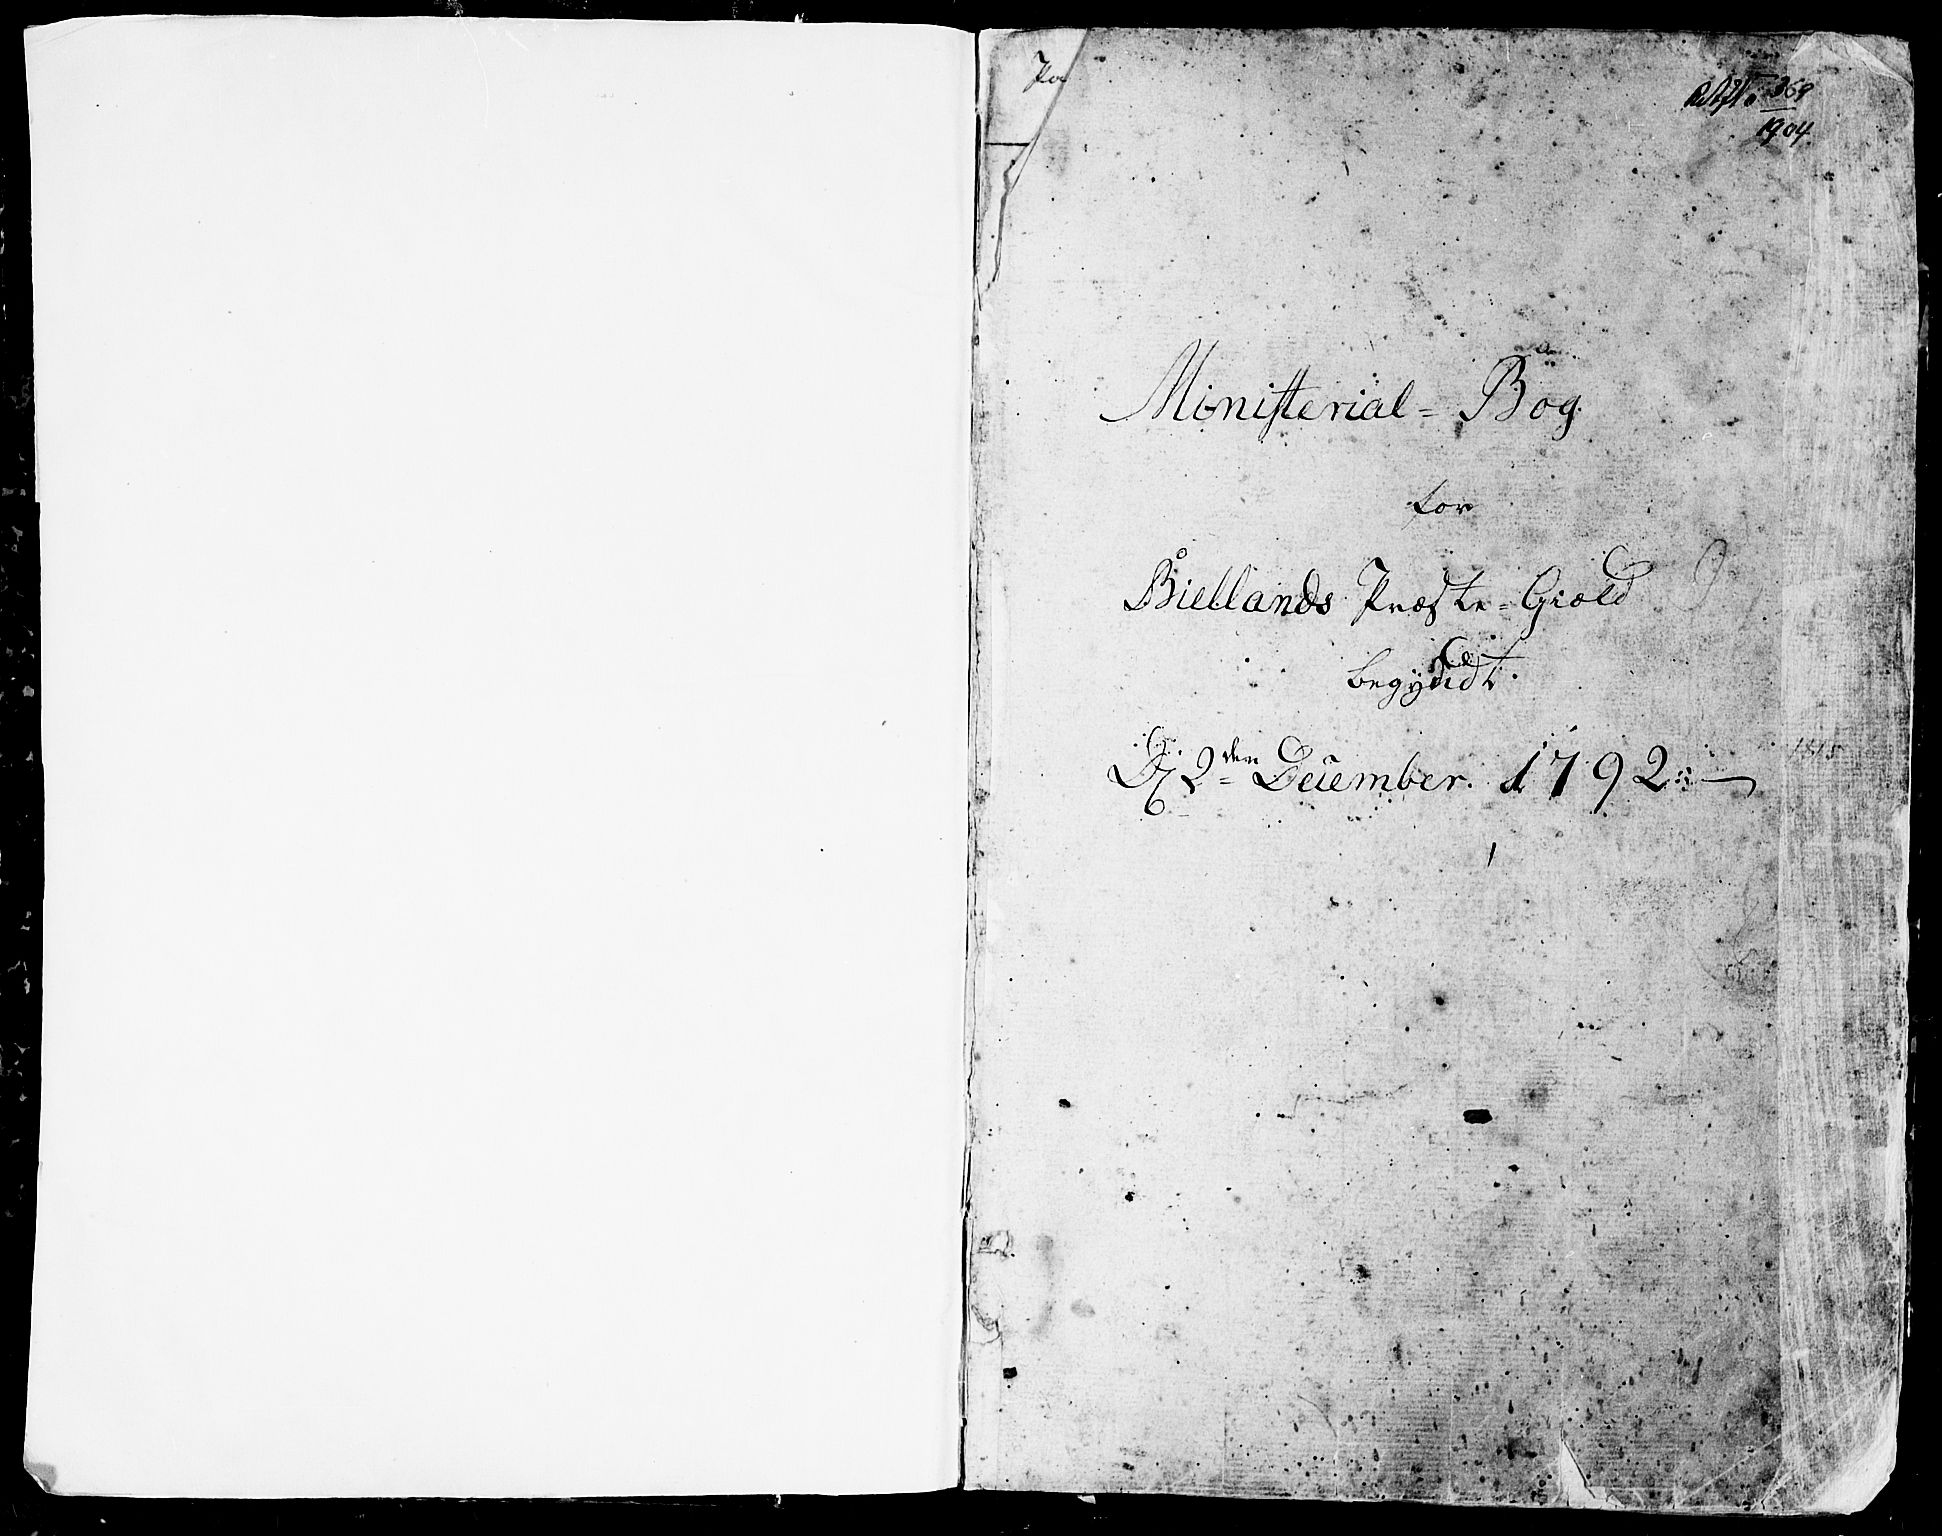 Pa
369
1904
Ministerial = Bog
for
Biellands Præste = Giæld
begyndt
D. 2den December. 1792
1815